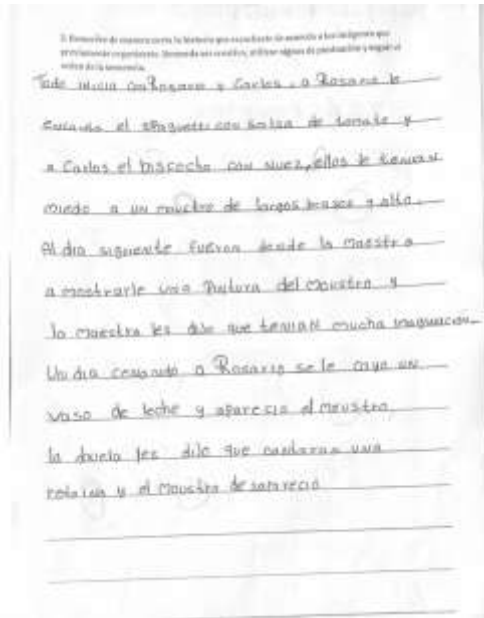 3. Reescribe de manera corta la historia que escuchaste de acuerdo a las imágenes que
orden de la secuencia.
Todo inicia con Rosario y Carlos, a Rosario le
encanta el spaguetti con salsa de tomate y
a Carlos el biscocho con nuez, ellos le tenian
miedo a un moustro de largos brasos y alto.
Al dia siguiente fueron donde la maestra
a mostrarle una Pintura del moustro y
la maestra les dijo que tenian mucha imaginación.
Un dia cenando a Rosario se le cayo un
vaso de leche y aparesio el moustro
la abuela les dijo que cantaran una
y el moustro desapareció